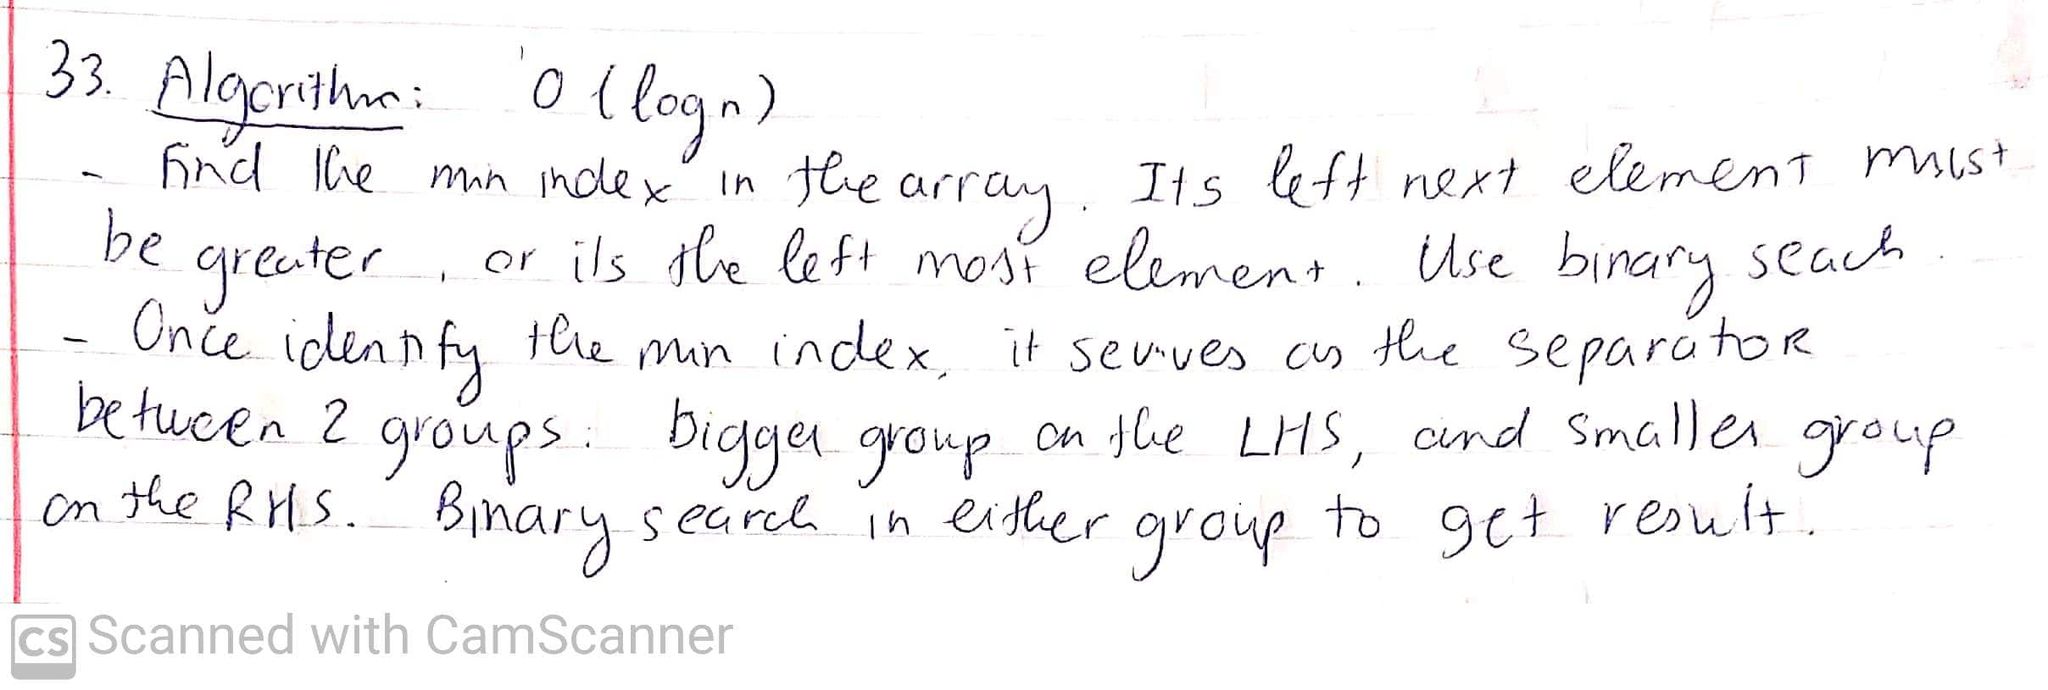 33. Algorithm: O(logn)
- Find the min index in the array. Its left next element must
be greater, or it's the left most element. Use binary seach.
- Once identify the min index, it serves as the separator
between 2 groups: bigger group on the LHS, and smaller group
on the RHS. Binary search in either group to get result.
CS Scanned with CamScanner